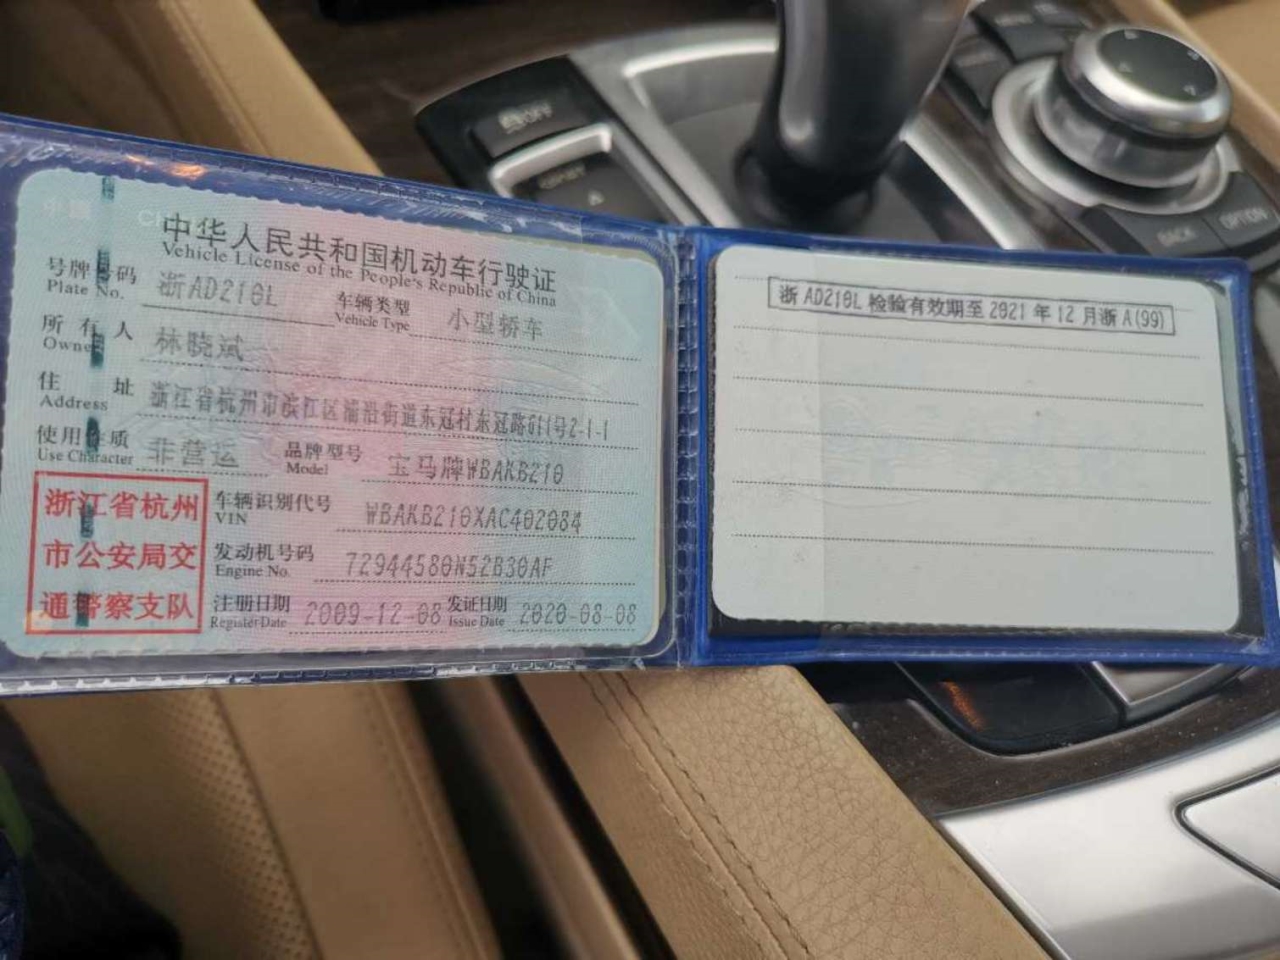 中华人民共和国机动车行驶证
Vehicle License of the People's Republic of China
号牌号码 浙AD210L 车辆类型 小型轿车
Plate No. Vehicle Type
所有人 林晓斌
Owner
住址 浙江省杭州市滨江区浦沿街道东冠村东冠路611号2-1-1
Address
使用性质 非营运 品牌型号 宝马牌WBAKB210
Use Character Model
浙江省杭州
市公安局交
通警察支队
车辆识别代号 WBAKB210XAC402084
VIN
发动机号码 72944580N52B30AF
Engine No.
注册日期 2009-12-08 发证日期 2020-08-08
Register Date Issue Date
浙AD210L检验有效期至2021年12月浙A(99)
OFF
SPORT
BACK
OPTION